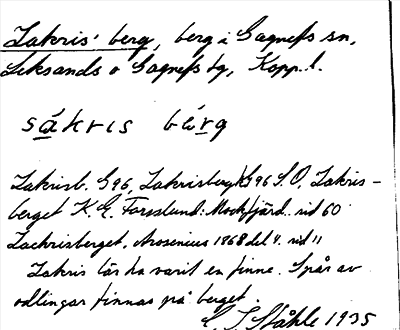 Zakris' berg, berg i Gagnefs sn,
Leksands o Gagnefs tg, Kopp. l.
sákris bærg
Zakrisb. G96, Zakrisberg k G96 S.O, Zakris-
berget K. E. Forsslund: Mockfjärd. sid 60
Zachrisberget, Arosenius 1868 del 4. sid 11
Zakris lär ha varit en finne. Spår av
odlingar finnas på berget.
Ståhle 1935